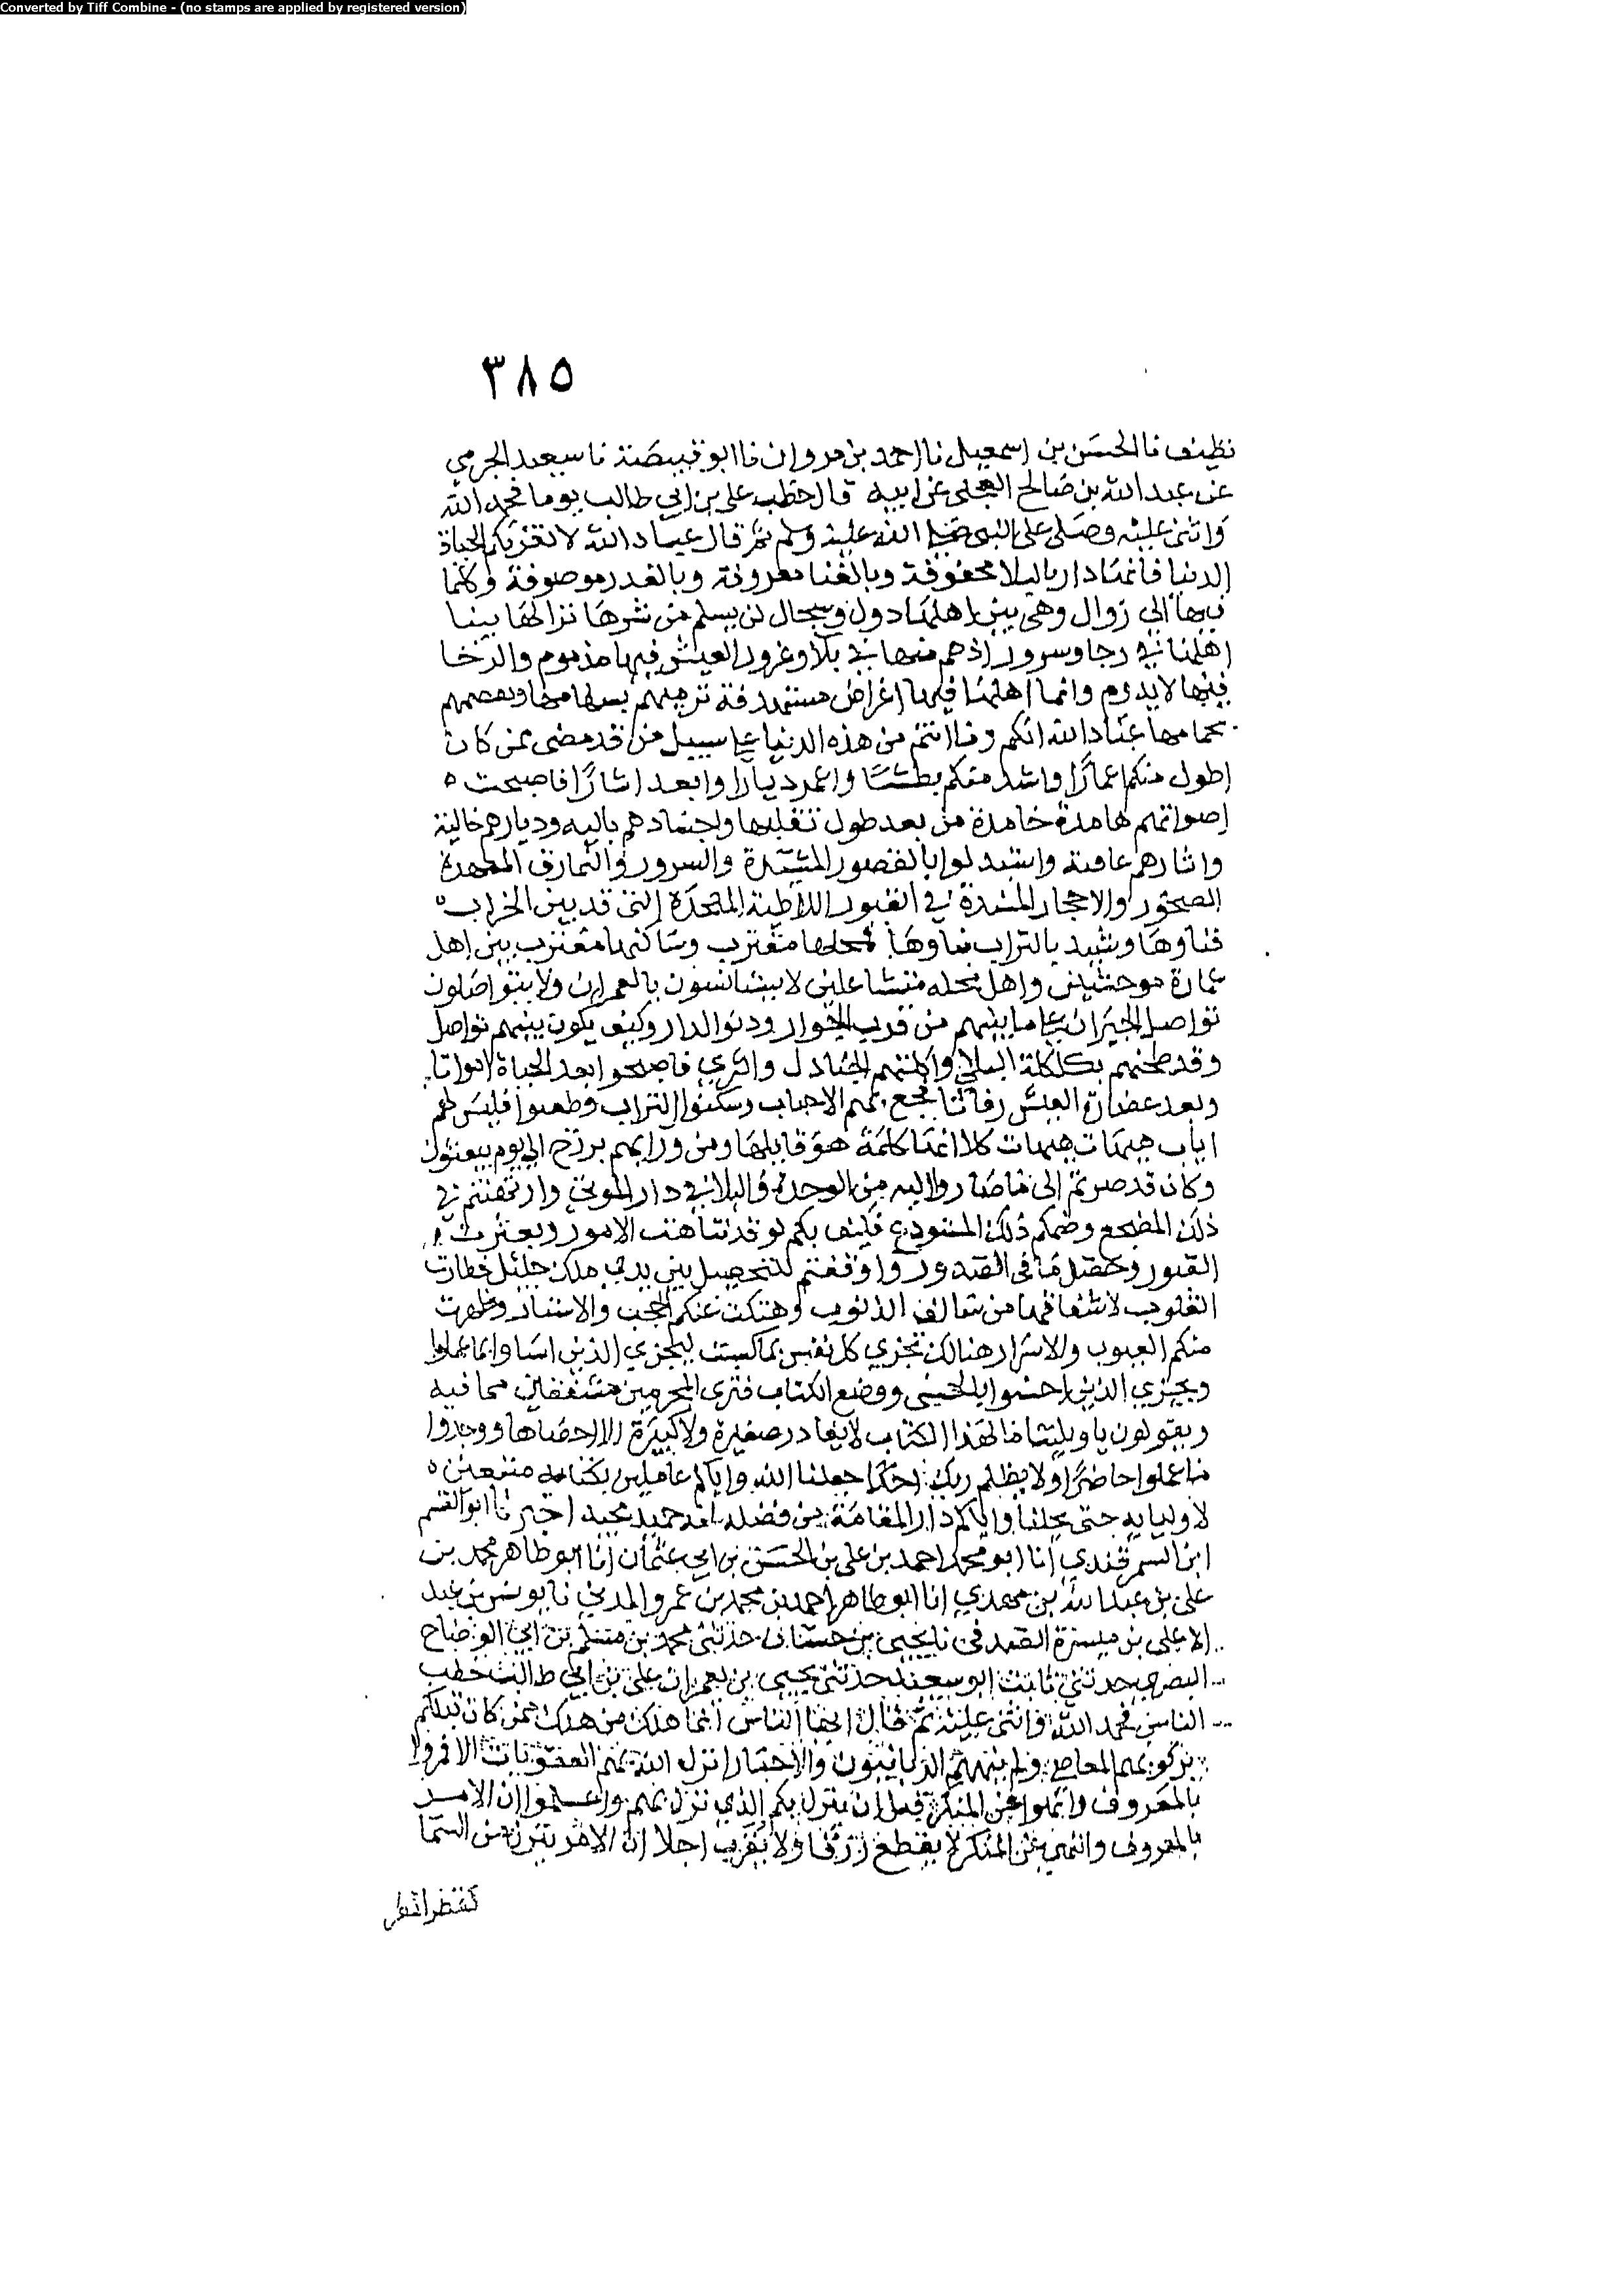 Converted by Tiff Combine - (no stamps are applied by registered version)
٣٨٥
نظيف نا الحسن بن اسمعيل نا احمد بن مروان نا ابو قبيصة نا سعيد الجرمي
عن عبد الله بن صالح العجلى عن ابيه قال خطب على بن ابي طالب يوما فحمد الله
واثنى عليه وصلى على النبي صلى الله عليه وسلم ثم قال عباد الله لا تغرنكم الحياة
الدنيا فانها دار بالبلا محفوفة وبالفنا معروفة وبالغدر موصوفة وكلما
فيها الى زوال وهى بين اهلها دول وسجال لن يسلم من شرها نزالها بينا
اهلها في رجا وسرور اذ هم منها في بلا وغرور العيش فيها مذموم والرخا
فيها لا يدوم وانما اهلها فيها اغراض مستهدفة ترميهم بسهامها وتقصمهم
بحمامها عباد الله انكم وما انتم من هذه الدنيا على سبيل من قد مضى ممن كان
اطول منكم اعمارا واشد منكم بطشا واعمر ديارا وابعد اثارا فاصبحت
اصواتهم هامدة خامدة من بعد طول تقلبها واجسادهم باليه وديارهم خالية
واثارهم عافية واستبدلوا بالقصور المشيدة والسرور والنمارق الممهدة
الصخور والاحجار المسندة في القبور اللاطية الملحدة التى قد بين الخراب
فناوها وشيد بالتراب بناوها فمحلها مقترب وساكنها مغترب بين اهل
عمارة موحشين واهل محله متشاغلين لا يستانسون بالعمران ولا يتواصلون
تواصل الجيران على ما بينهم من قرب الجوار ودنو الدار وكيف يكون بينهم تواصل
وقد طحنهم بكلكلة البلى واكلتهم الجنادل والثرى فاصبحوا بعد الحياة امواتا
وبعد غضارة العيش رفاتا فجع بهم الاحباب وسكنوا التراب وظعنوا فليس لهم
اياب هيهات هيهات كلا انها كلمة هو قايلها ومن ورايهم برزخ الى يوم يبعثون
وكان قد صرتم الى ما صاروا اليه من الوحدة والبلا في دار الموتى وارتهنتم في
ذلك المضجع وضمكم ذلك المستودع فكيف بكم لو قد تناهت الامور وبعثرت
القبور وحصل ما فى الصدور واوقفتم للتحصيل بين يدي ملك جليل فطارت
القلوب لاشفاقها من سالف الذنوب وهتكت عنكم الحجب والاستار وظهرت
منكم العيوب والاسرار هنالك تجزي كل نفس بما كسبت ليجزي الذين اساوا بما عملوا
ويجزي الذين احسنوا بالحسنى ووضع الكتاب فترى المجرمين مشفقين مما فيه
ويقولون يا ويلتنا ما لهذا الكتاب لا يغادر صغيرة ولا كبيرة الا احصاها ووجدوا
ما عملوا حاضرا ولا يظلم ربك احدا جعلنا الله واياكم عاملين بكتابه متبعين
لاوليايه حتى يحلنا واياكم دار المقامة من فضله انه حميد مجيد اخبرنا ابو القسم
ابن السمرقندي انا ابو محمد احمد بن على بن الحسن بن ابي عثمان انا ابو طاهر محمد بن
على بن عبد الله بن مهدي انا ابو طاهر احمد بن محمد بن عمرو المدني نا يونس بن عبد
الاعلى بن ميسرة الصدفى نا يحيى بن حسان حدثنى محمد بن مسلم بن ابي الوضاح
البصرى حدثني ثابت ابو سعيد حدثنى يحيى بن يعمر ان على بن ابي طالب خطب
الناس فحمد الله واثنى عليه ثم قال ايها الناس انما هلك من هلك ممن كان قبلكم
بركوبهم المعاصي ولم ينههم الربانيون والاحبار انزل الله بهم العقوبات الا فمروا
بالمعروف وانهوا عن المنكر قبل ان ينزل بكم الذي نزل بهم واعلموا ان الامر
بالمعروف والنهي عن المنكر لا يقطع رزقا ولا يقرب اجلا ان الامر ينزل من السما
كقطر القطر